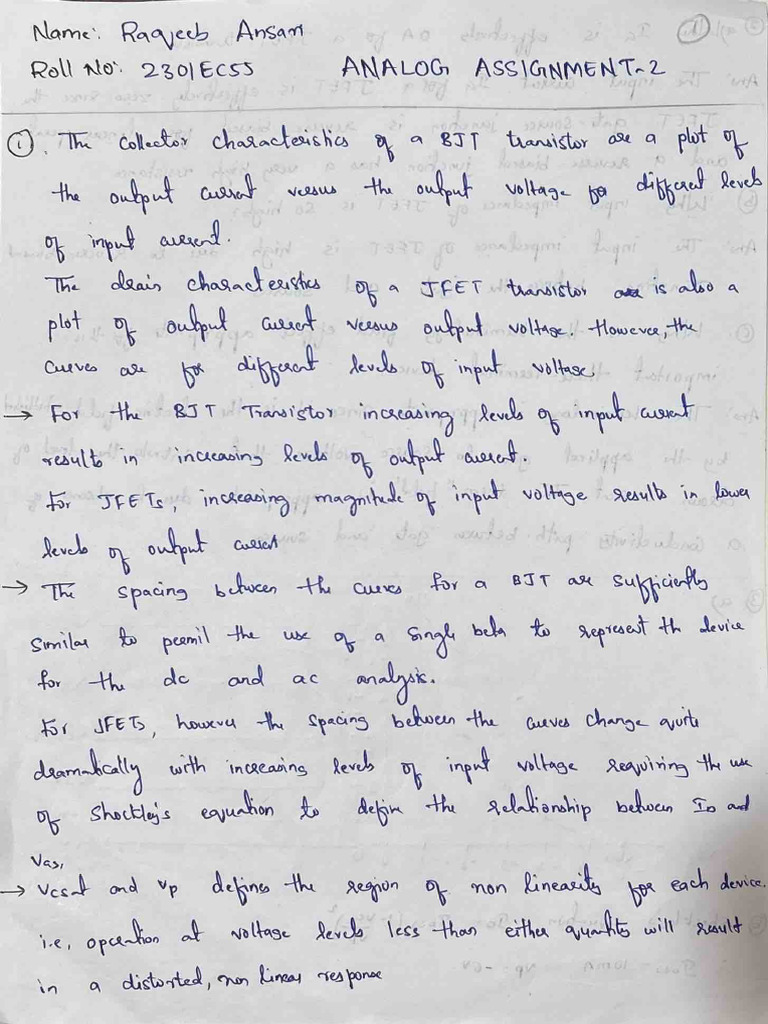 Name: Raqeeb Ansari
①
Roll No: 2301EC55 ANALOG ASSIGNMENT-2
①. The collector characteristics of a BJT transistor are a plot of
the output current versus the output voltage for different levels
of input current.
The drain characteristics of a JFET transistor is also a
plot of output current versus output voltage. However, the
curves are for different levels of input voltage
→ For the BJT Transistor increasing levels of input current
results in increasing levels of output current.
For JFETs, increasing magnitude of input voltage results in lower
levels of output current
→ The spacing between the curves for a BJT are sufficiently
similar to permit the use of a single beta to represent th device
for the dc and ac analysis.
For JFETs, however the spacing between the curves change quite
dramatically with increasing levels of input voltage requiring the use
of Shockley's equation to define the relationship between ID and
VGS,
→ Vcsat and Vp defines the region of non linearity for each device.
i.e, operation at voltage levels less than either quantity will result
in a distorted, non linear response